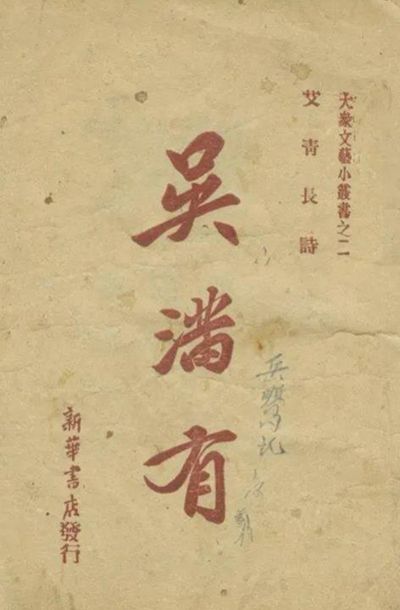 大衆文藝小叢書之二
艾青長詩
吳滿有
新華書店發行